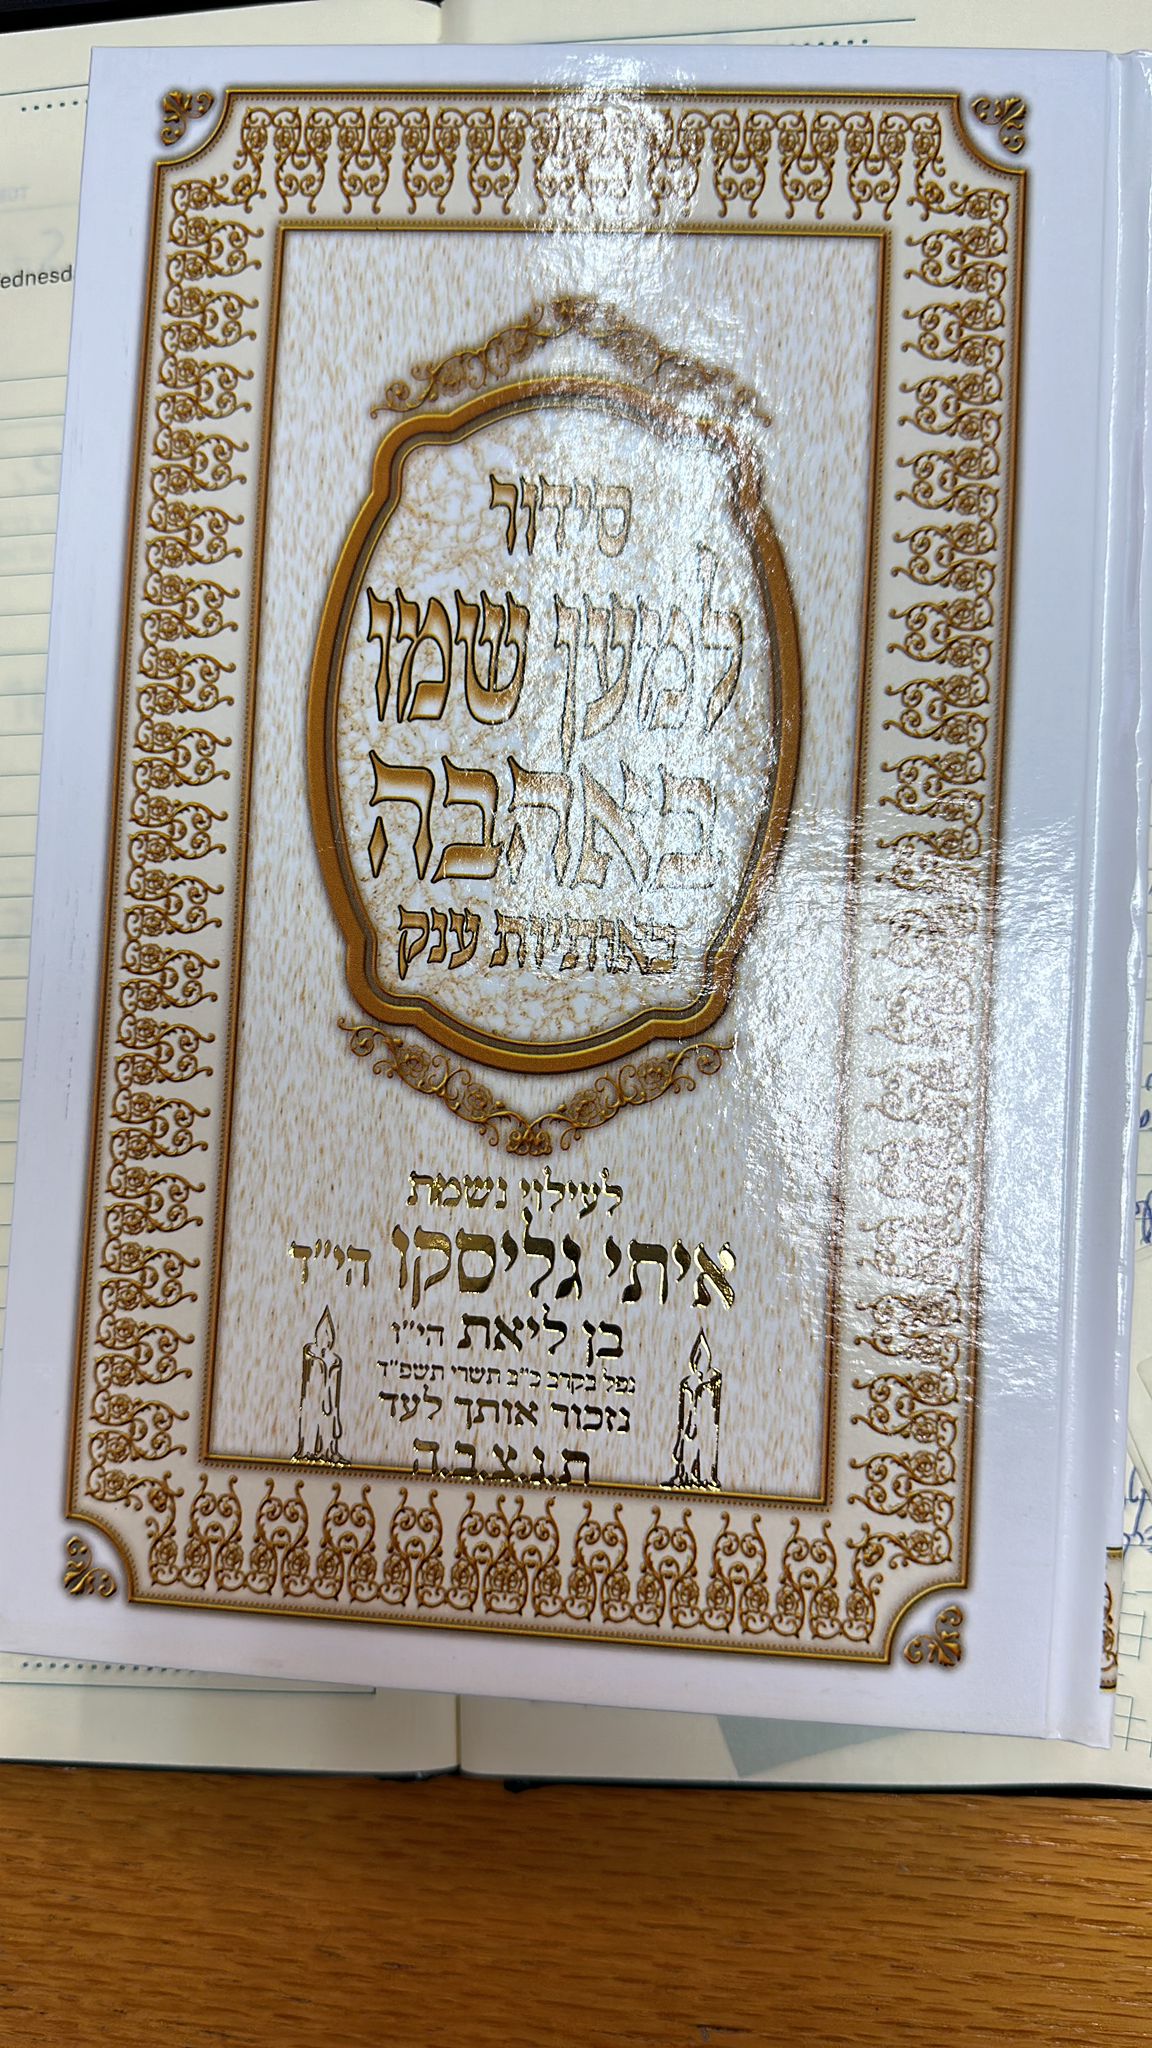 סידור
למען שמו
באהבה
באותיות ענק
לעילוי נשמת
איתי גליסקו הי"ד
בן ליאת הי"ו
נפל בקרב כ"ב תשרי תשפ"ד
נזכור אותך לעד
ת.נ.צ.ב.ה
ednesd